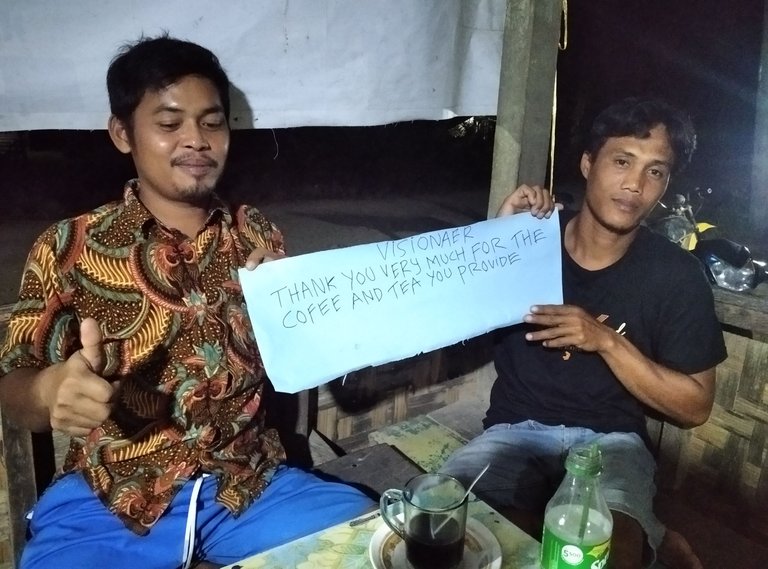 VISIONAER
THANK YOU VERY MUCH FOR THE
COFEE AND TEA YOU PROVIDE